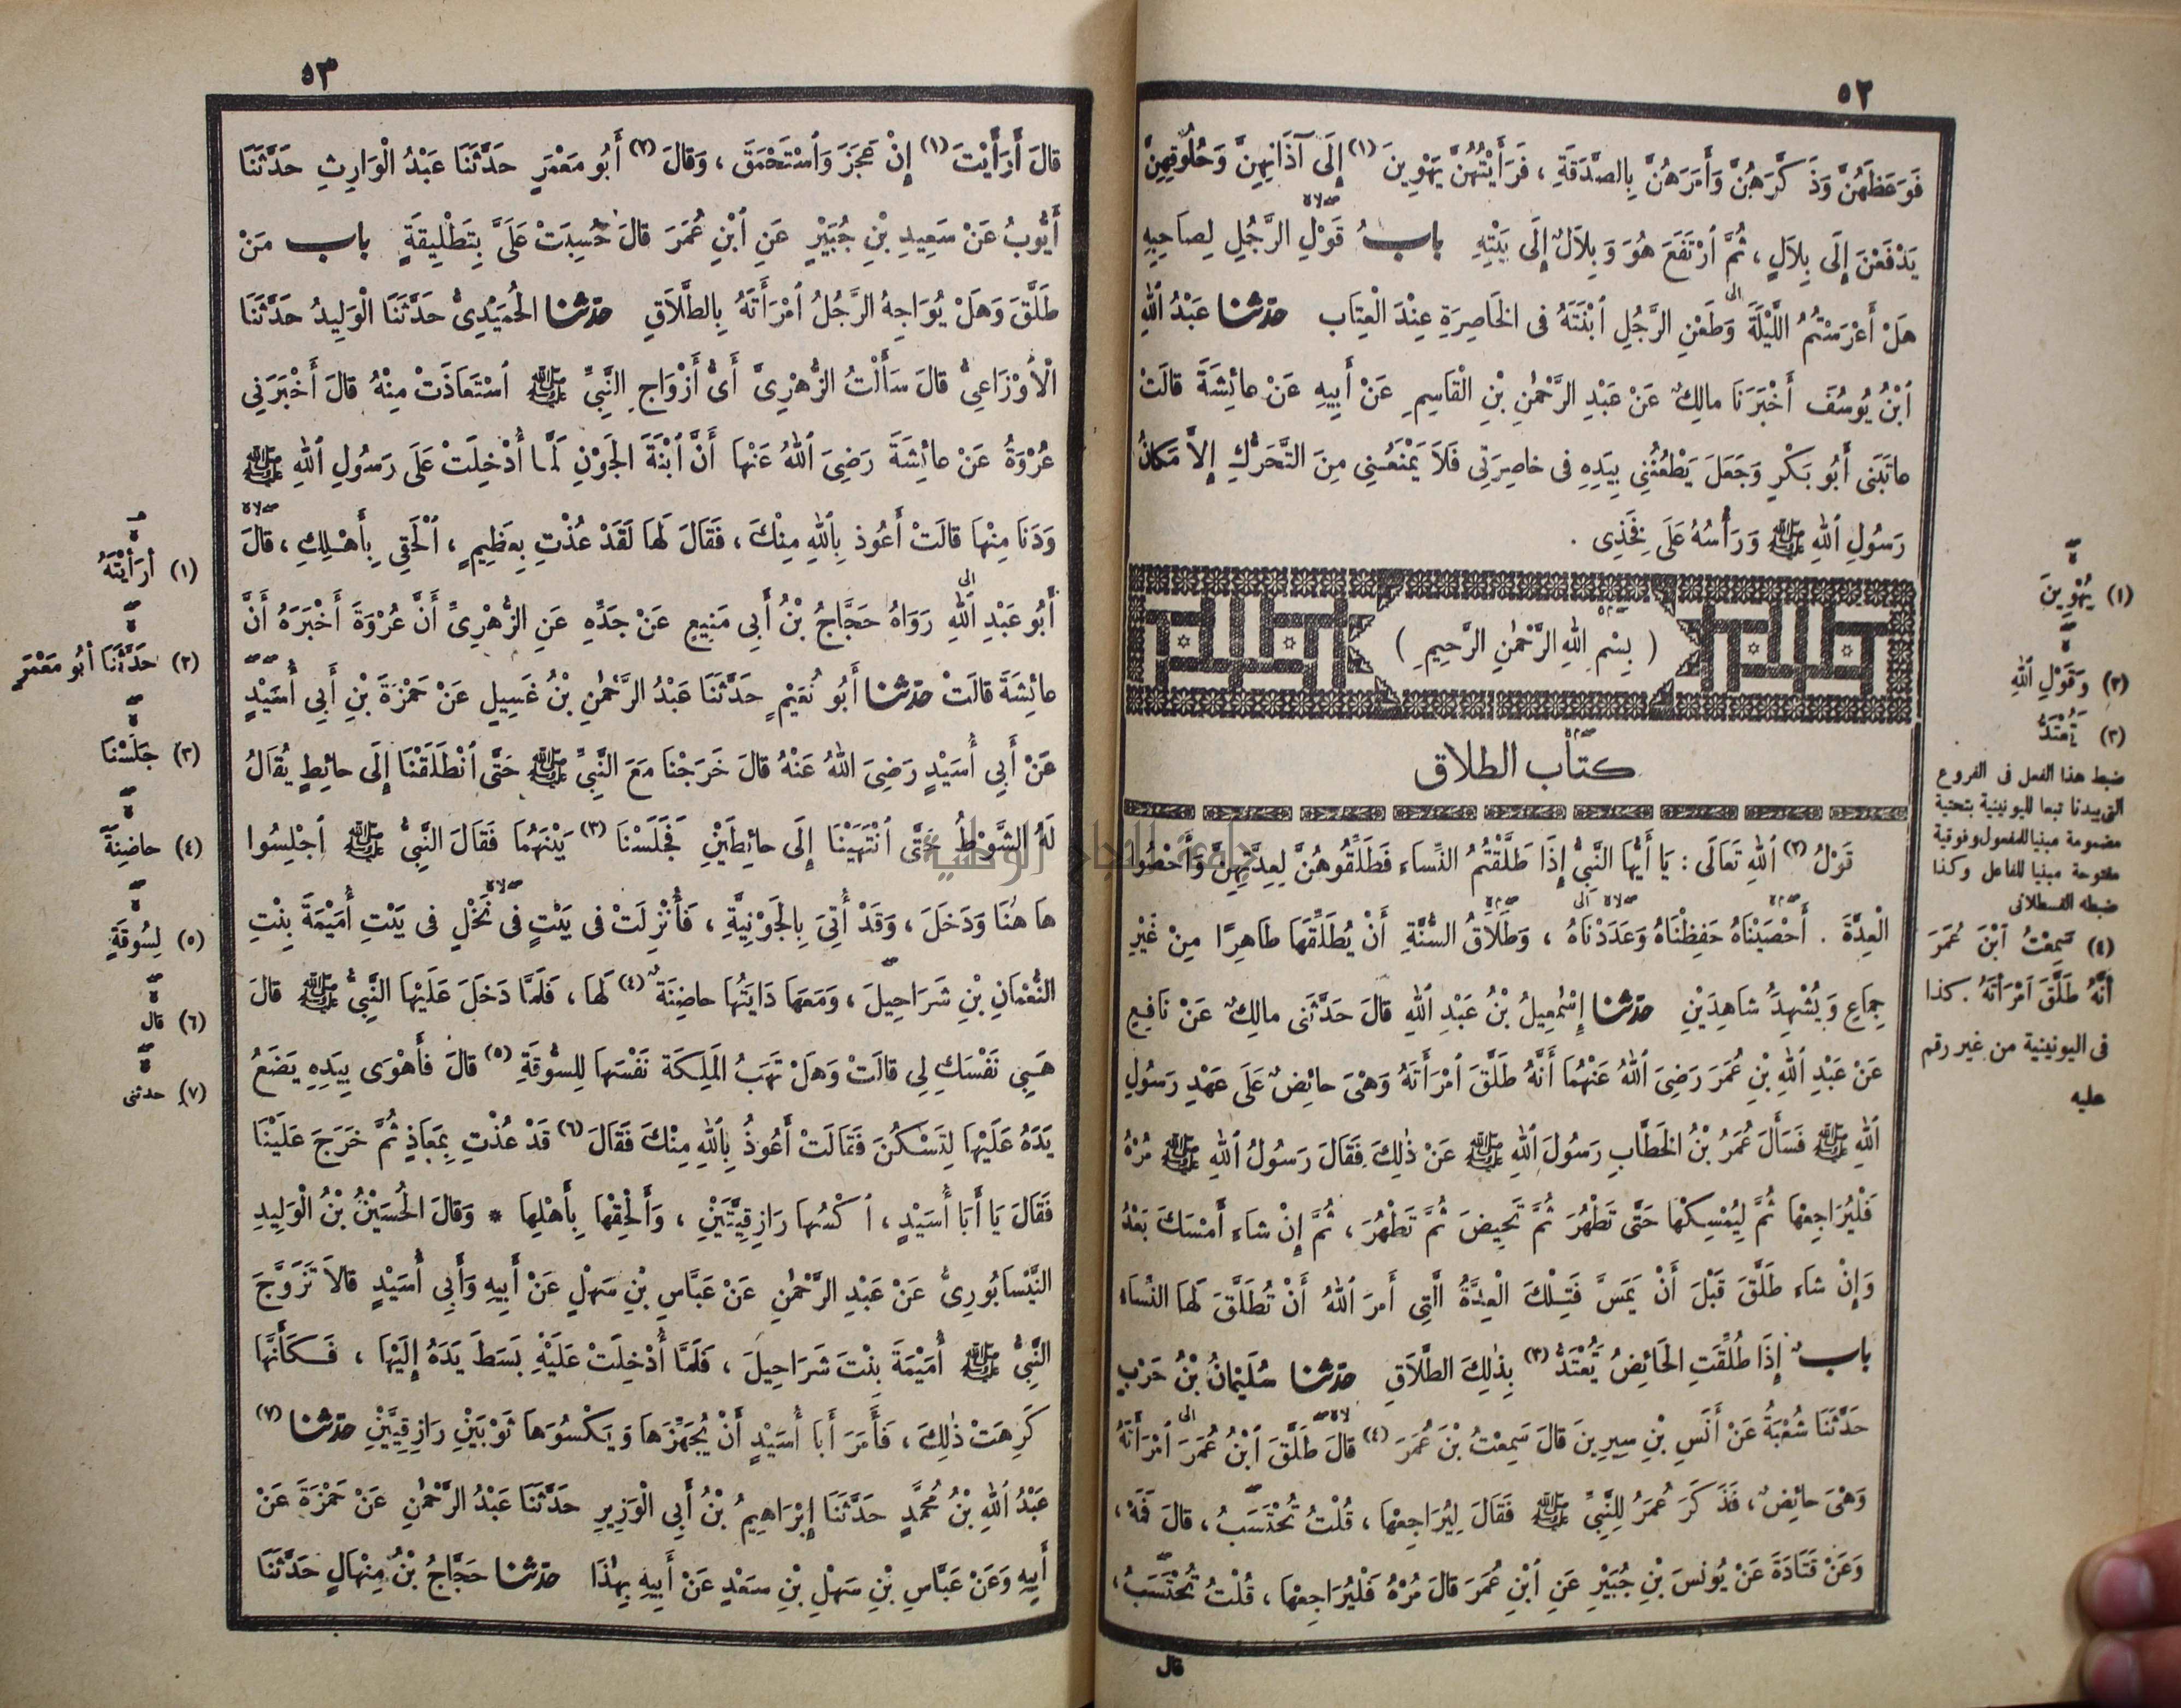 ٥٢
فَوَعَظَهُنَّ وَذَكَّرَهُنَّ وَأَمَرَهُنَّ بِالصَّدَقَةِ ، فَرَأَيْتُهُنَّ يَهْوِينَ (١) إِلَى آذَانِهِنَّ وَحُلُوقِهِنَّ
يَدْفَعْنَ إِلَى بِلاَلٍ ، ثُمَّ ٱرْتَفَعَ هُوَ وَبِلاَلٌ إِلَى بَيْتِهِ بابُ قَوْلِ الرَّجُلِ لِصَاحِبِهِ
هَلْ أَعْرَسْتُمُ اللَّيْلَةَ وَطَعْنِ الرَّجُلِ ٱبْنَتَهُ فى الخَاصِرَةِ عِنْدَ الْعِتَابِ حدثنا عَبْدُ ٱللهِ
ٱبْنُ يُوسُفَ أَخْبَرَنَا مالِكٌ عَنْ عَبْدِ الرَّحْمٰنِ بْنِ الْقَاسِمِ عَنْ أَبِيهِ عَنْ عائِشَةَ قالَتْ
عاتَبَنِى أَبُو بَكْرٍ وَجَعَلَ يَطْعُنُنِى بِيَدِهِ فى خاصِرَتِى فَلاَ يَمْنَعُنِى مِنَ التَّحَرُّكِ إِلاَّ مَكانُ
رَسُولِ ٱللهِ ﷺ وَرَأْسُهُ عَلَى فَخِذِى .
( بِسْمِ اللهِ الرَّحْمٰنِ الرَّحِيمِ )
كتاب الطلاق
قَوْلُ (٢) ٱللهِ تَعَالَى : يَا أَيُّهَا النَّبِىُّ إِذَا طَلَّقْتُمُ النِّسَاءَ فَطَلِّقُوهُنَّ لِعِدَّتِهِنَّ وَأَحْصُوا
الْعِدَّةَ . أَحْصَيْنَاهُ حَفِظْنَاهُ وَعَدَدْنَاهُ ، وَطَلاَقُ السُّنَّةِ أَنْ يُطَلِّقَهَا طَاهِرًا مِنْ غَيْرِ
جِمَاعٍ وَيُشْهِدُ شَاهِدَيْنِ حدثنا إِسْمٰعِيلُ بْنُ عَبْدِ ٱللهِ قالَ حَدَّثَنِى مالِكٌ عَنْ نَافِعٍ
عَنْ عَبْدِ ٱللهِ بْنِ عُمَرَ رَضِىَ ٱللهُ عَنْهُمَا أَنَّهُ طَلَّقَ ٱمْرَأَتَهُ وَهْىَ حائِضٌ عَلَى عَهْدِ رَسُولِ
ٱللهِ ﷺ فَسَأَلَ عُمَرُ بْنُ الخَطَّابِ رَسُولَ ٱللهِ ﷺ عَنْ ذٰلِكَ فَقَالَ رَسُولُ ٱللهِ ﷺ مُرْهُ
فَلْيُرَاجِعْهَا ثُمَّ لِيُمْسِكْهَا حَتَّى تَطْهُرَ ثُمَّ تَحِيضَ ثُمَّ تَطْهُرَ ، ثُمَّ إِنْ شَاءَ أَمْسَكَ بَعْدُ
وَإِنْ شَاءَ طَلَّقَ قَبْلَ أَنْ يَمَسَّ فَتِلْكَ الْعِدَّةُ الَّتِى أَمَرَ ٱللهُ أَنْ تُطَلَّقَ لَهَا النِّسَاءُ
بابٌ إِذَا طُلِّقَتِ الحَائِضُ يُعْتَدُّ (٣) بِذٰلِكَ الطَّلاَقِ حدثنا سُلَيْمَانُ بْنُ حَرْبٍ
حَدَّثَنَا شُعْبَةُ عَنْ أَنَسِ بْنِ سِيرِينَ قالَ سَمِعْتُ بْنَ عُمَرَ (٤) قالَ طَلَّقَ ٱبْنُ عُمَرَ ٱمْرَأَتَهُ
وَهْىَ حائِضٌ ، فَذَكَرَ عُمَرُ لِلنَّبِىِّ ﷺ فَقَالَ لِيُرَاجِعْهَا ، قُلْتُ تُحْتَسَبُ ، قالَ فَمَهْ ،
وَعَنْ قَتَادَةَ عَنْ يُونُسَ بْنِ جُبَيْرٍ عَنِ ٱبْنِ عُمَرَ قالَ مُرْهُ فَلْيُرَاجِعْهَا ، قُلْتُ تُحْتَسَبُ ،
قال
(١) يُهْوِينَ
(٢) وَقَوْلِ ٱللهِ
(٣) تُعْتَدُّ
ضبط هذا الفعل فى الفروع
التى بيدنا تبعا لليونينية بتحتية
مضمومة مبنيا للمفعول وفوقية
مفتوحة مبنيا للفاعل وكذا
ضبطه القسطلانى
(٤) سَمِعْتُ ٱبْنَ عُمَرَ
أَنَّهُ طَلَّقَ ٱمْرَأَتَهُ . كذا
فى اليونينية من غير رقم
عليه
٥٣
قالَ أَرَأَيْتَ (١) إِنْ عَجَزَ وَٱسْتَحْمَقَ ، وَقالَ (٢) أَبُو مَعْمَرٍ حَدَّثَنَا عَبْدُ الْوَارِثِ حَدَّثَنَا
أَيُّوبُ عَنْ سَعِيدِ بْنِ جُبَيْرٍ عَنِ ٱبْنِ عُمَرَ قالَ حُسِبَتْ عَلَىَّ بِتَطْلِيقَةٍ باب مَنْ
طَلَّقَ وَهَلْ يُوَاجِهُ الرَّجُلُ ٱمْرَأَتَهُ بِالطَّلاَقِ حدثنا الحُمَيْدِىُّ حَدَّثَنَا الْوَلِيدُ حَدَّثَنَا
الْأَوْزَاعِىُّ قالَ سَأَلْتُ الزُّهْرِىَّ أَىُّ أَزْوَاجِ النَّبِىِّ ﷺ ٱسْتَعَاذَتْ مِنْهُ قالَ أَخْبَرَنِى
عُرْوَةُ عَنْ عائِشَةَ رَضِىَ ٱللهُ عَنْهَا أَنَّ ٱبْنَةَ الجَوْنِ لَمَّا أُدْخِلَتْ عَلَى رَسُولِ ٱللهِ ﷺ
وَدَنَا مِنْهَا قالَتْ أَعُوذُ بِٱللهِ مِنْكَ ، فَقَالَ لَهَا لَقَدْ عُذْتِ بِعَظِيمٍ ، ٱلْحَقِى بِأَهْلِكِ ، قالَ
أَبُو عَبْدِ ٱللهِ رَوَاهُ حَجَّاجُ بْنُ أَبِى مَنِيعٍ عَنْ جَدِّهِ عَنِ الزُّهْرِىِّ أَنَّ عُرْوَةَ أَخْبَرَهُ أَنَّ
عائِشَةَ قالَتْ حدثنا أَبُو نُعَيْمٍ حَدَّثَنَا عَبْدُ الرَّحْمٰنِ بْنُ غَسِيلٍ عَنْ حَمْزَةَ بْنِ أَبِى أُسَيْدٍ
عَنْ أَبِى أُسَيْدٍ رَضِىَ اللهُ عَنْهُ قالَ خَرَجْنَا مَعَ النَّبِىِّ ﷺ حَتَّى ٱنْطَلَقْنَا إِلَى حائِطٍ يُقَالُ
لَهُ الشَّوْطُ حَتَّى ٱنْتَهَيْنَا إِلَى حائِطَيْنِ فَجَلَسْنَا (٣) بَيْنَهُمَا فَقَالَ النَّبِىُّ ﷺ ٱجْلِسُوا
هَا هُنَا وَدَخَلَ ، وَقَدْ أُتِىَ بِالجَوْنِيَّةِ ، فَأُنْزِلَتْ فى بَيْتٍ فى نَخْلٍ فى بَيْتِ أُمَيْمَةَ بِنْتِ
النُّعْمَانِ بْنِ شَرَاحِيلَ ، وَمَعَهَا دَايَتُهَا حاضِنَةٌ (٤) لَهَا ، فَلَمَّا دَخَلَ عَلَيْهَا النَّبِىُّ ﷺ قالَ
هَبِى نَفْسَكِ لِى قالَتْ وَهَلْ تَهَبُ المَلِكَةُ نَفْسَهَا لِلسُّوقَةِ (٥) قالَ فَأَهْوَى بِيَدِهِ يَضَعُ
يَدَهُ عَلَيْهَا لِتَسْكُنَ فَقَالَتْ أَعُوذُ بِٱللهِ مِنْكَ فَقَالَ (٦) قَدْ عُذْتِ بِمَعَاذٍ ثُمَّ خَرَجَ عَلَيْنَا
فَقَالَ يَا أَبَا أُسَيْدٍ ، ٱكْسُهَا رَازِقِيَّتَيْنِ ، وَأَلْحِقْهَا بِأَهْلِهَا * وَقالَ الحُسَيْنُ بْنُ الْوَلِيدِ
النَّيْسَابُورِىُّ عَنْ عَبْدِ الرَّحْمٰنِ عَنْ عَبَّاسِ بْنِ سَهْلٍ عَنْ أَبِيهِ وَأَبِى أُسَيْدٍ قالاَ تَزَوَّجَ
النَّبِىُّ ﷺ أُمَيْمَةَ بِنْتَ شَرَاحِيلَ ، فَلَمَّا أُدْخِلَتْ عَلَيْهِ بَسَطَ يَدَهُ إِلَيْهَا ، فَكَأَنَّهَا
كَرِهَتْ ذٰلِكَ ، فَأَمَرَ أَبَا أُسَيْدٍ أَنْ يُجَهِّزَهَا وَيَكْسُوَهَا ثَوْبَيْنِ رَازِقِيَّيْنِ حدثنا (٧)
عَبْدُ اللهِ بْنُ مُحَمَّدٍ حَدَّثَنَا إِبْرَاهِيمُ بْنُ أَبِى الْوَزِيرِ حَدَّثَنَا عَبْدُ الرَّحْمٰنِ عَنْ حَمْزَةَ عَنْ
أَبِيهِ وَعَنْ عَبَّاسِ بْنِ سَهْلِ بْنِ سَعْدٍ عَنْ أَبِيهِ بِهٰذَا حدثنا حَجَّاجُ بْنُ مِنْهَالٍ حَدَّثَنَا
(١) أرَأيْتَهُ
(٢) حَدَّثَنَا أبُو مَعْمَرٍ
(٣) جَلَسْنَا
(٤) حاضِنَةً
(٥) لِسُوقَةٍ
(٦) قال
(٧) حدثنى